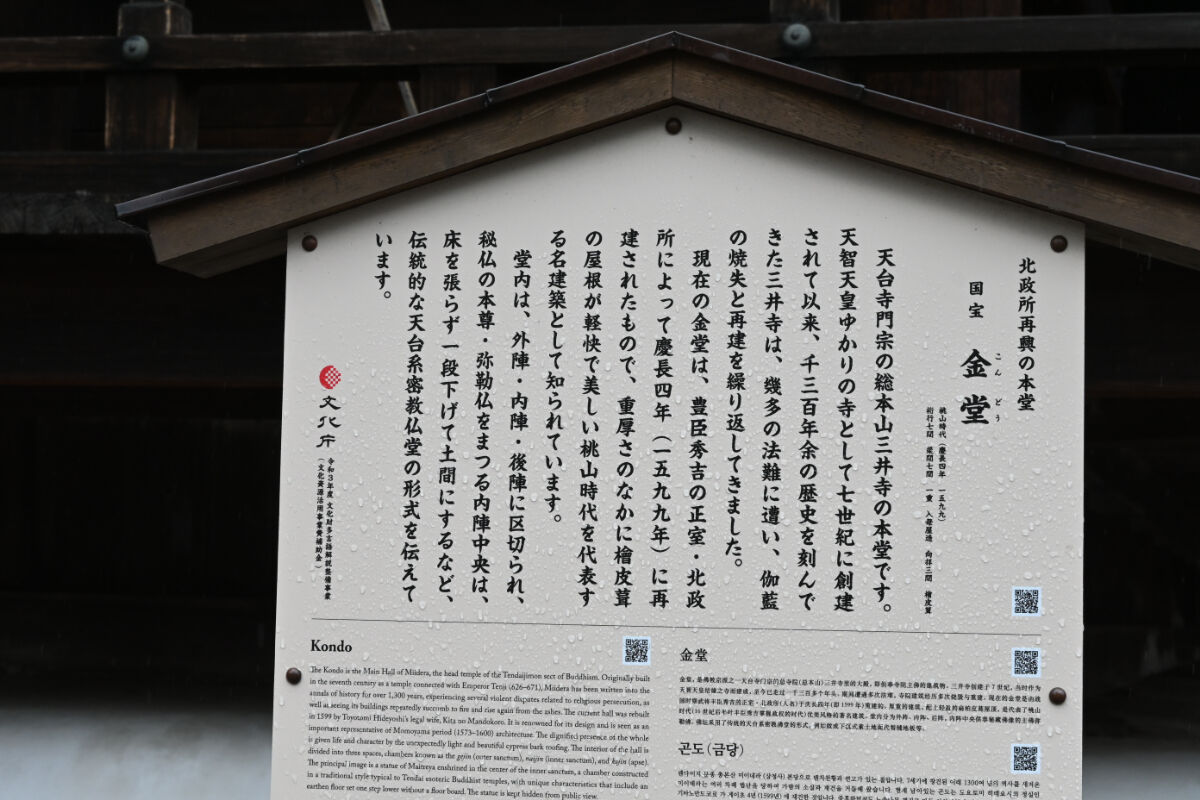 北政所再興の本堂
国宝
金堂
こんどう
桃山時代（慶長四年 一五九九）
桁行七間 梁間七間 一重 入母屋造 向拝三間 檜皮葺
天台寺門宗の総本山三井寺の本堂です。
天智天皇ゆかりの寺として七世紀に創建
されて以来、千三百年余の歴史を刻んで
きた三井寺は、幾多の法難に遭い、伽藍
の焼失と再建を繰り返してきました。
現在の金堂は、豊臣秀吉の正室・北政
所によって慶長四年（一五九九年）に再
建されたもので、重厚さのなかに檜皮葺
の屋根が軽快で美しい桃山時代を代表す
る名建築として知られています。
堂内は、外陣・内陣・後陣に区切られ、
秘仏の本尊・弥勒仏をまつる内陣中央は、
床を張らず一段下げて土間にするなど、
伝統的な天台系密教仏堂の形式を伝えて
います。
文化庁
令和３年度 文化財多言語解説整備事業
（文化資源活用事業費補助金）
Kondo
The Kondo is the Main Hall of Miidera, the head temple of the Tendaijimon sect of Buddhism. Originally built
in the seventh century as a temple connected with Emperor Tenji (626–671), Miidera has been written into the
annals of history for over 1,300 years, experiencing several violent disputes related to religious persecution, as
well as seeing its buildings repeatedly succumb to fire and rise again from the ashes. The current hall was rebuilt
in 1599 by Toyotomi Hideyoshi's legal wife, Kita no Mandokoro. It is renowned for its design and is seen as an
important representative of Momoyama period (1573–1600) architecture. The dignified presence of the whole
is given life and character by the unexpectedly light and beautiful cypress bark roofing. The interior of the hall is
divided into three spaces, chambers known as the gejin (outer sanctum), naijin (inner sanctum), and kojin (apse).
The principal image is a statue of Maitreya enshrined in the center of the inner sanctum, a chamber constructed
in a traditional style typical to Tendai esoteric Buddhist temples, with unique characteristics that include an
earthen floor set one step lower without a floor board. The statue is kept hidden from public view.
金堂
곤도(금당)